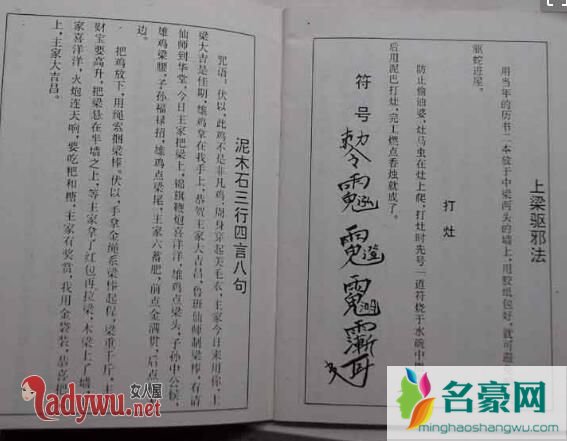 上梁驱邪法
用当年的历书二本放于中梁两头的墙上,用胶纸包好,就可避
驱蛇进屋。
打灶
防止偷油婆、灶马虫在灶上爬,打灶时先号一道符烧于水碗中
后用泥巴打灶,完工燃点香烛就成了。
符号
敕令
泥木石三行四言八句
咒语:伏以,此鸡不是非凡鸡,周身穿起美毛衣,主家今日来用你,上
梁大吉是佳期,雄鸡拿在我手上,恭贺主家大吉昌,鲁班仙师制梁棒,有请
仙师到华堂,今日主家把梁上,锦旗鞭炮喜洋洋,雄鸡点梁头,子孙中公侯,
雄鸡梁腰,子孙福禄招,雄鸡点梁尾,主家六蓄肥,前点金满贯,后点
边。
把鸡放下,用绳索捆梁棒。伏以,手拿金绳系梁棒起程,梁重千斤,主
财宝要高升,把梁悬在半墙之上,等主家拿了红包再拉梁,木梁上了墙,
家喜洋洋,火炮连天响,要吃粑和糖,主家有奖赏,我用金袋装,恭喜把
上,主家大吉昌。
女人屋
Ladywu.net
名豪网
minghaoshangwu.com